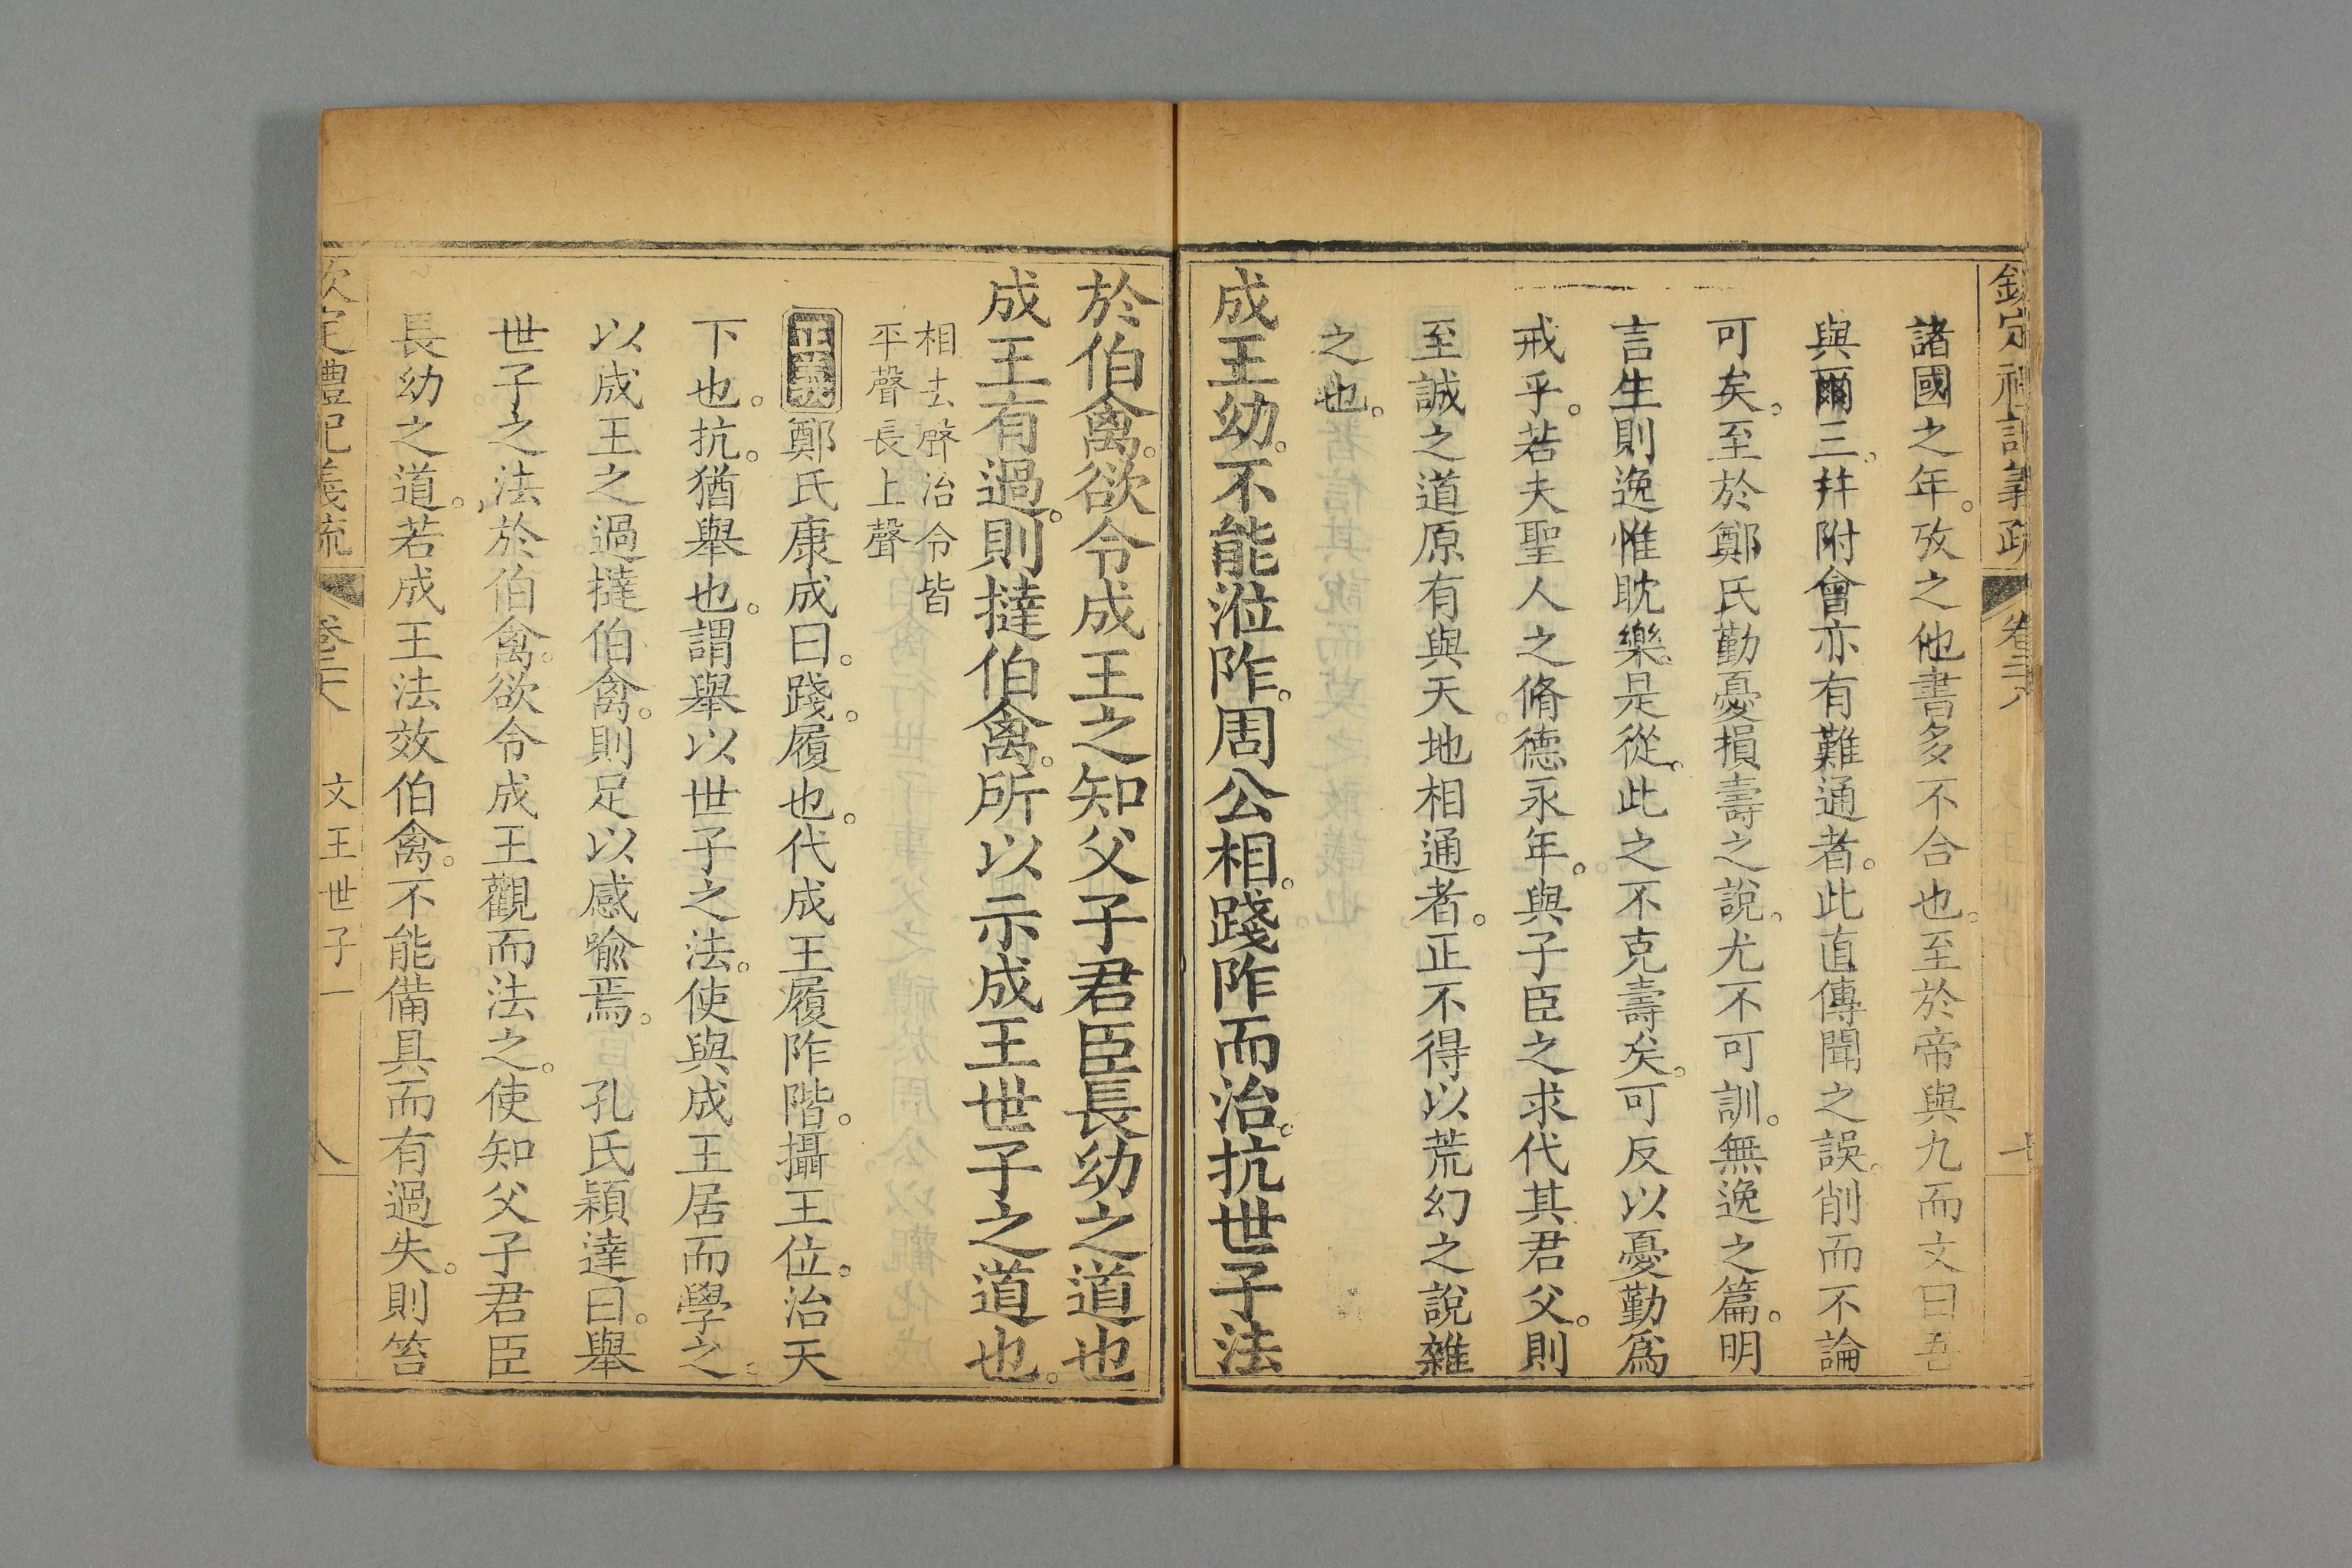 欽定禮記義疏 卷二十八 七
諸國之年。攷之他書多不合也。至於帝與九而文曰吾
與爾三。拜附會亦有難通者。此直傳聞之誤。削而不論
可矣。至於鄭氏勤憂損壽之說。尤不可訓。無逸之篇。明
言生則逸惟耽樂。是從。此之不克壽矣。可反以憂勤爲
戒乎。若夫聖人之脩德永年。與子臣之求代其君父。則
至誠之道原有與天地相通者。正不得以荒幻之說雜
之也。
成王幼。不能涖阼。周公相。踐阼而治。抗世子法
於伯禽。欲令成王之知父子君臣長幼之道也
成王有過。則撻伯禽。所以示成王世子之道也。
相去聲治令皆
平聲長上聲
正義鄭氏康成曰。踐。履也。代成王履阼階。攝王位。治天
下也。抗。猶舉也。謂舉以世子之法。使與成王居而學之。
以成王之過撻伯禽。則足以感喻焉。 孔氏穎達曰。舉
世子之法於伯禽。欲令成王觀而法之。使知父子君臣
長幼之道。若成王法效伯禽。不能備具而有過失。則笞
欽定禮記義疏 卷二十八 文王世子一 八